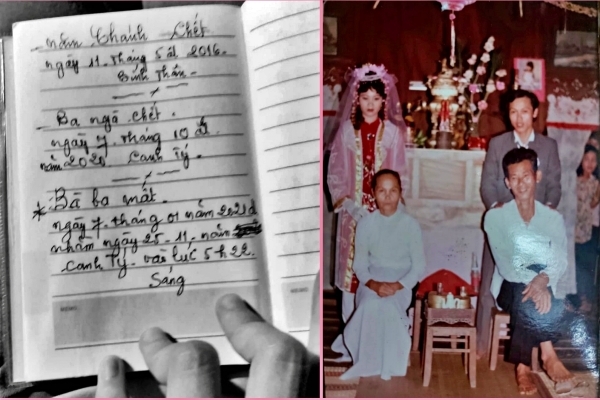 - Năm Chánh Chết
ngày 11. tháng 5 âl 2016.
Bính Thân.
- Ba ngã chết.
ngày 7 tháng 10 âl
năm 2020 Canh Tý.
* Bà ba mất.
ngày 7. tháng 01 năm 2021 d
nhằm ngày 25 - 11 - năm
Canh Tý. vào lúc 5 h 22.
Sáng